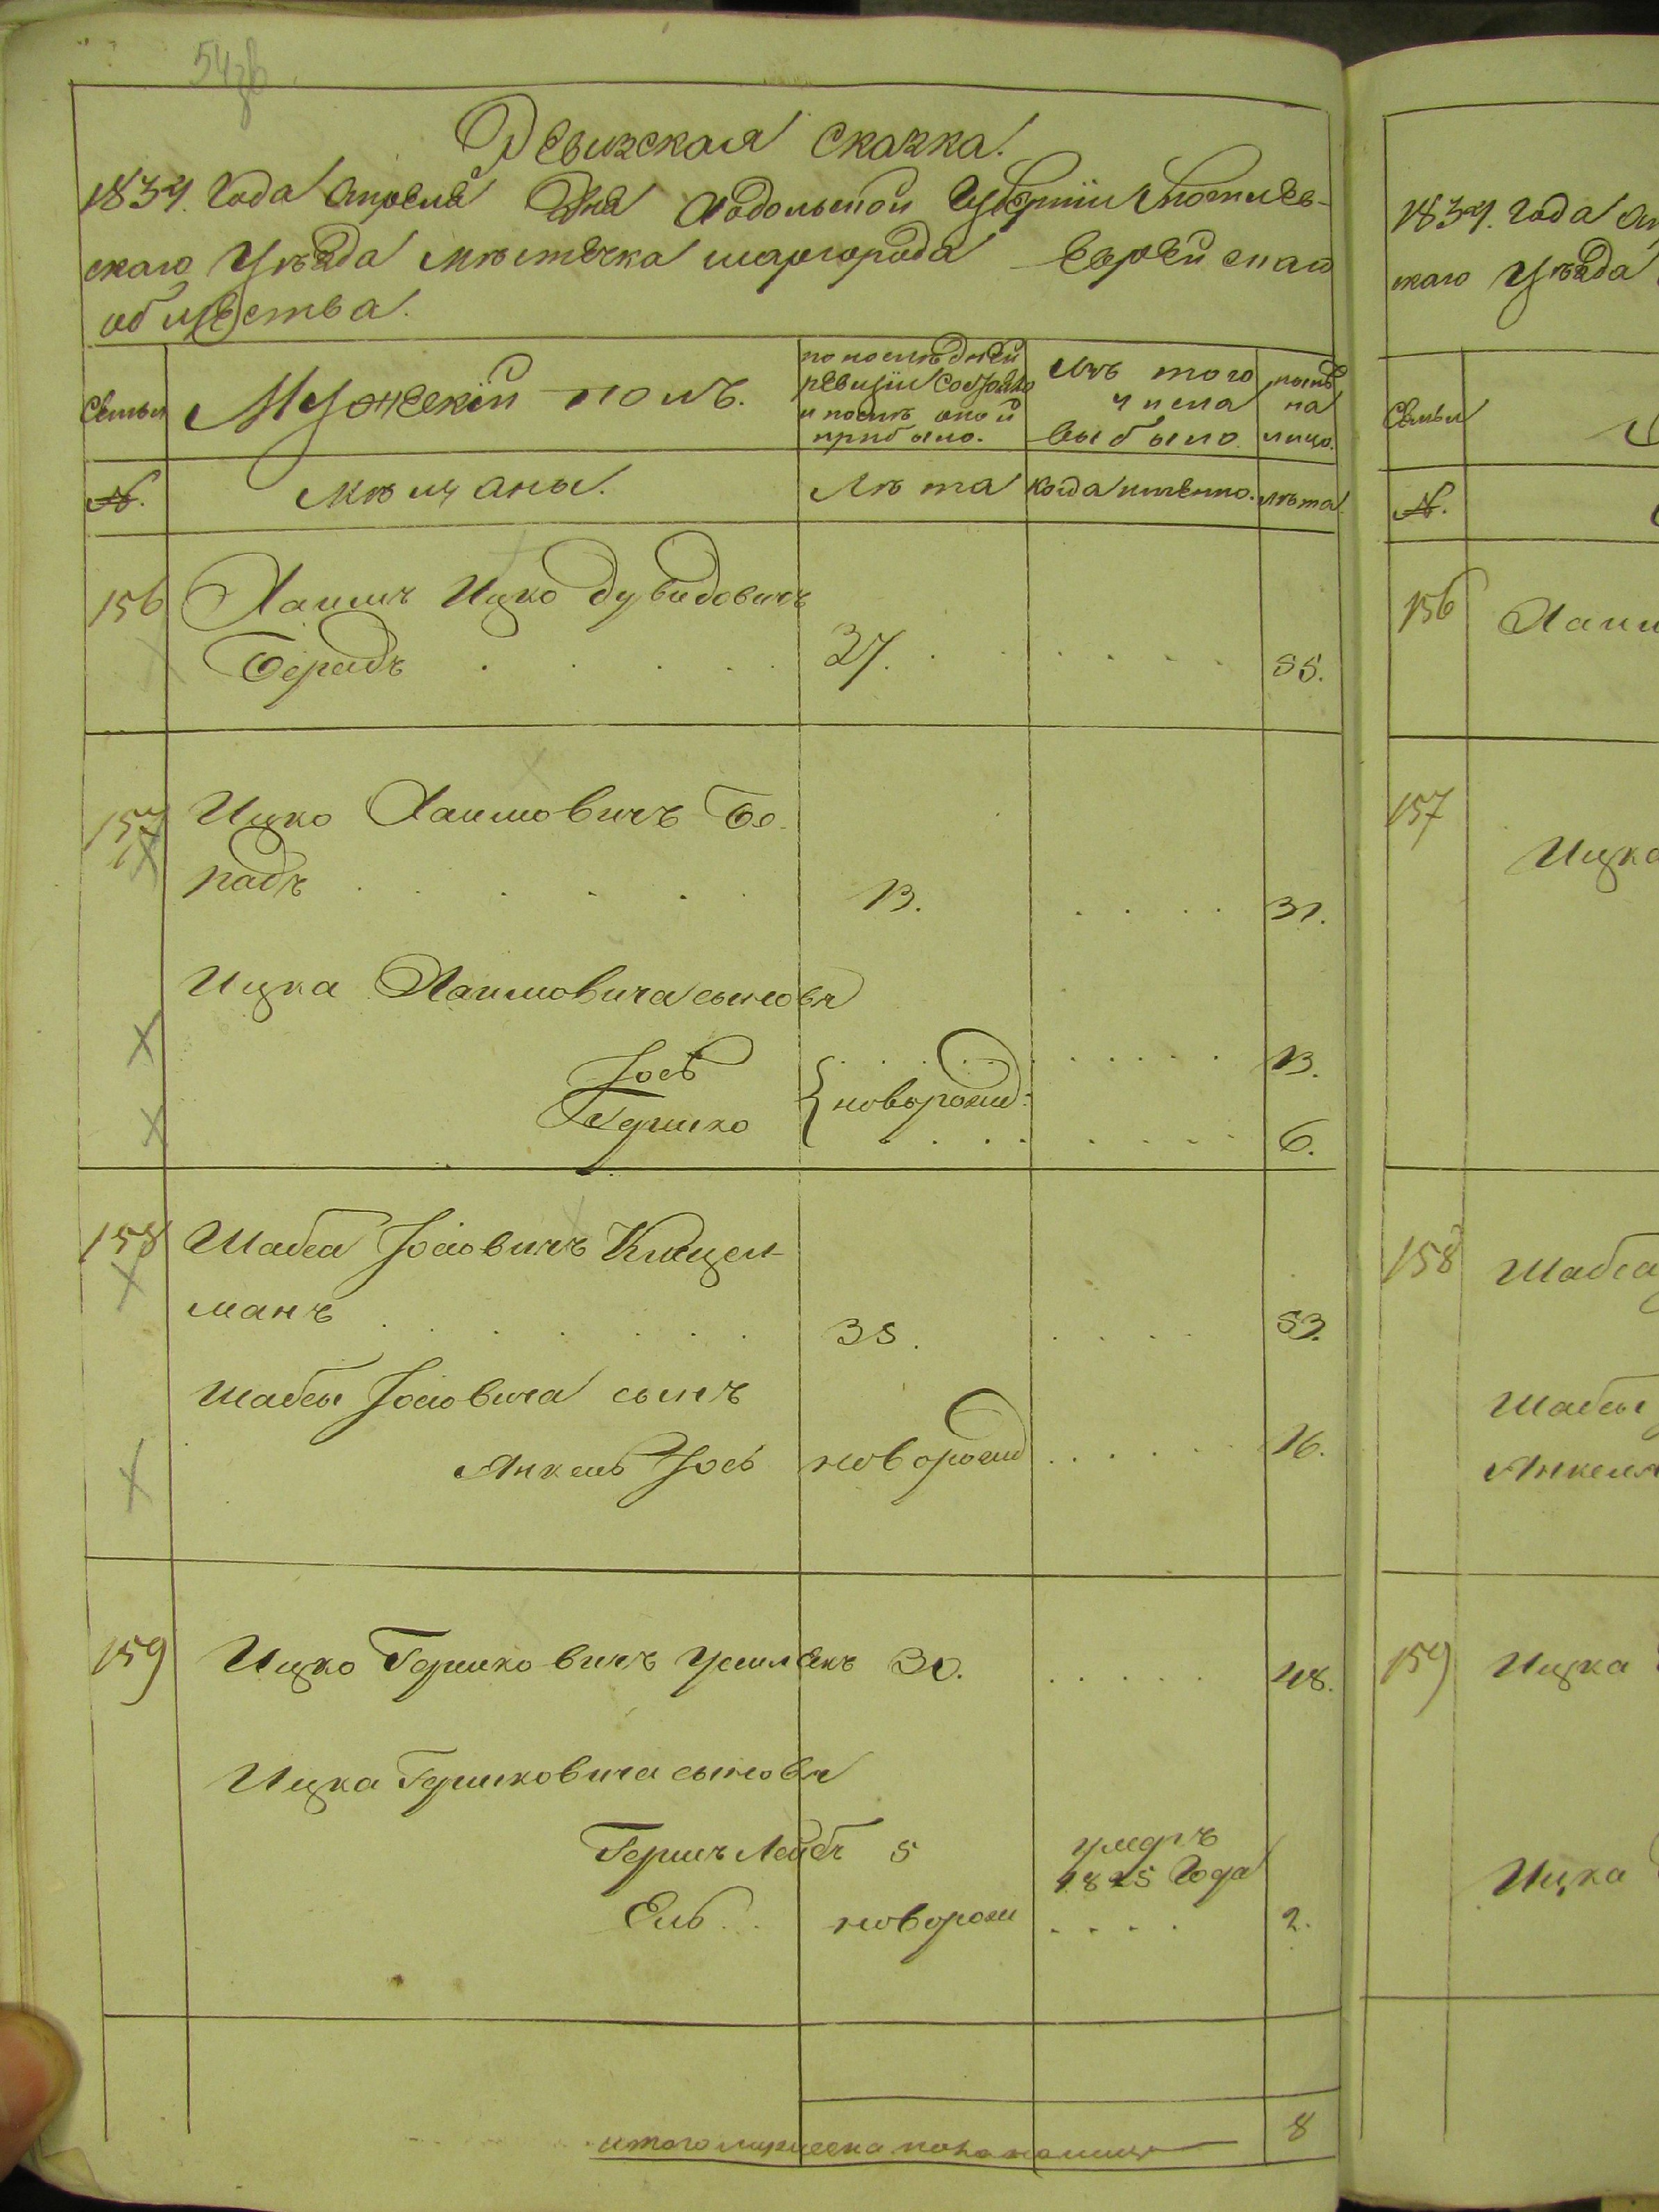 54
Ревизская сказка.
1834. Года Апреля Дня Подольской Губернiи Могилев-
скаго Уѣзда мѣстечка шаргорода Еврейскаго
общества.
Семьи
Мужескiй полъ.
по послѣдней
ревизiи состояло
и послѣ оной
прибыло.
Изъ того
числа
выбыло
нынѣ
на
лицо.
№.
мѣщаны.
Лѣта
когда именно.
лѣта
156 Хаимъ Ицко Дувидовичъ
Берадъ . . . . . 37. . . . . . 55.
157 Ицко Хаимовичъ Бе-
радъ . . . . . 13. . . . . 31.
Ицка Хаимовича сыновья
Іось . . . . . . . . . 13.
новорожд:
Гершко . . . . . . . . 6.
158 Шабса Іосіовичъ
манъ . . . . . . 35. . . . . 53.
Шабсы Іосіовича сынъ
Янкель Іось новорожд . . . . . 16.
159 Ицко Гершковичъ 30. . . . . . 48.
Ицка Гершковича сыновья
Гершъ Лейбъ 5 умеръ
1825 Года
Ель . . новорож . . . . 2.
итого мужеска пола на лицо 8
1834. Года Ап
скаго Уѣзда
Семьи
№.
156 Хаим
157
Ицка
158 Шабса
Шабсы
Янкеля
159 Ицка
Ицка